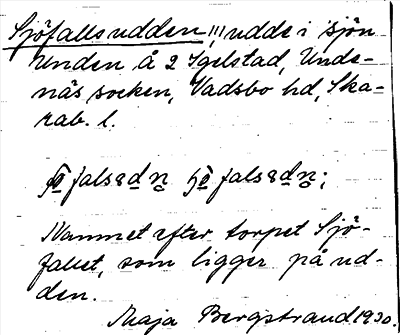 Sjöfallsudden, udde i sjön
Unden å 2 Igelstad, Unde-
näs socken, Vadsbo hd, Ska-
rab. l.
falsedn falsedn;
Namnet efter torpet Sjö-
fallet, som ligger på ud-
den.
Maja Bergstrand 1930.